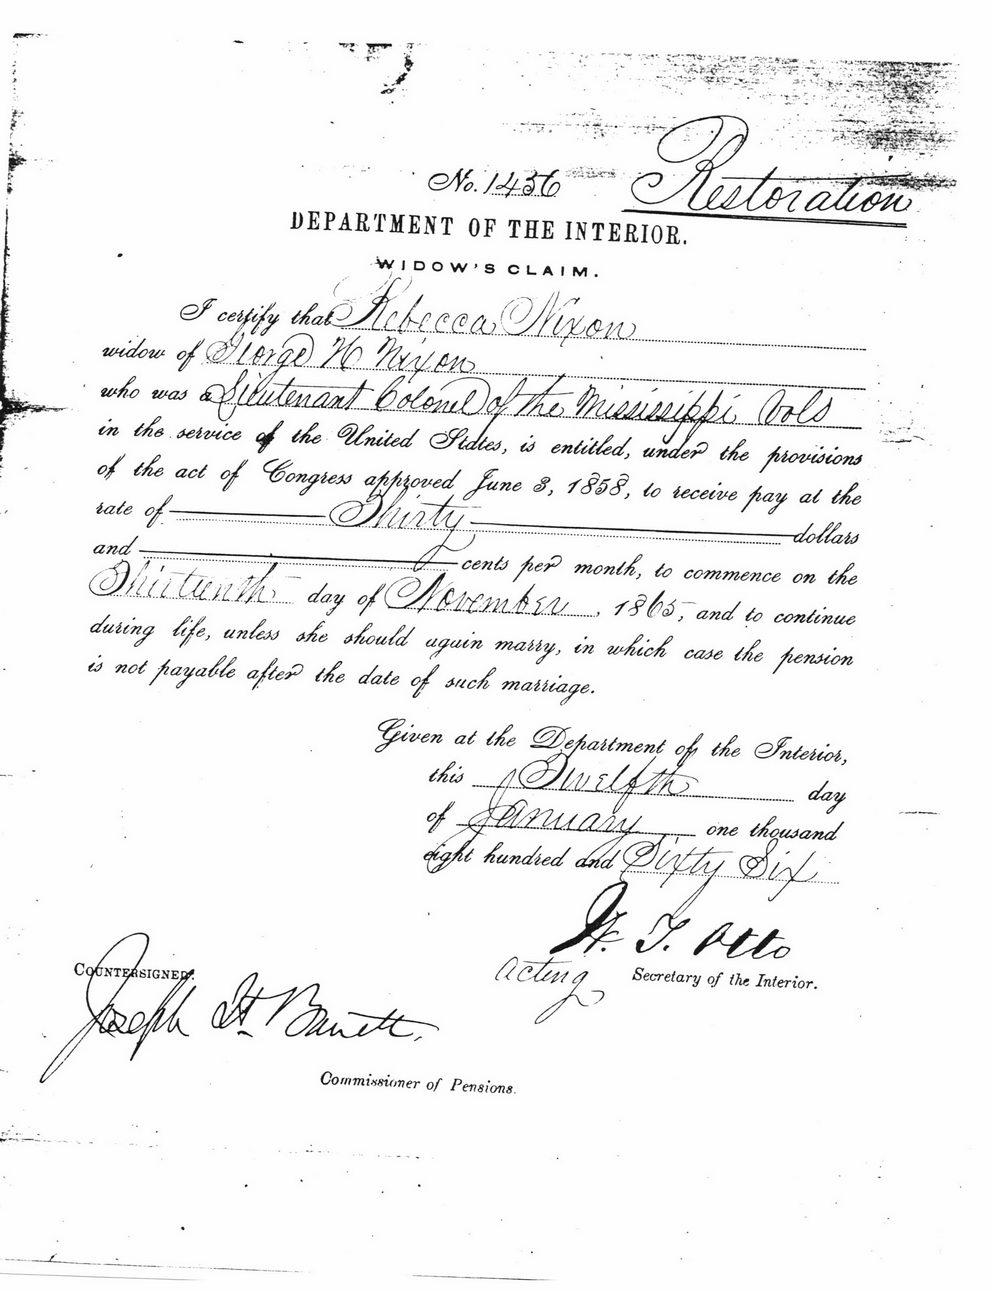 No. 1456
Restoration
DEPARTMENT OF THE INTERIOR.
WIDOW'S CLAIM.
I certify that Rebecca Nixon
widow of George H Nixon
who was a Lieutenant Colonel of the Mississippi Vols
in the service of the United States, is entitled, under the provisions
of the act of Congress approved June 3, 1858, to receive pay at the
rate of Thirty dollars
and cents per month, to commence on the
Thirteenth day of November, 1865, and to continue
during life, unless she should again marry, in which case the pension
is not payable after the date of such marriage.
Given at the Department of the Interior,
this Twelfth day
of January one thousand
eight hundred and Sixty Six
W. T. Otto
Acting Secretary of the Interior.
COUNTERSIGNED:
Joseph H. Barrett.
Commissioner of Pensions.